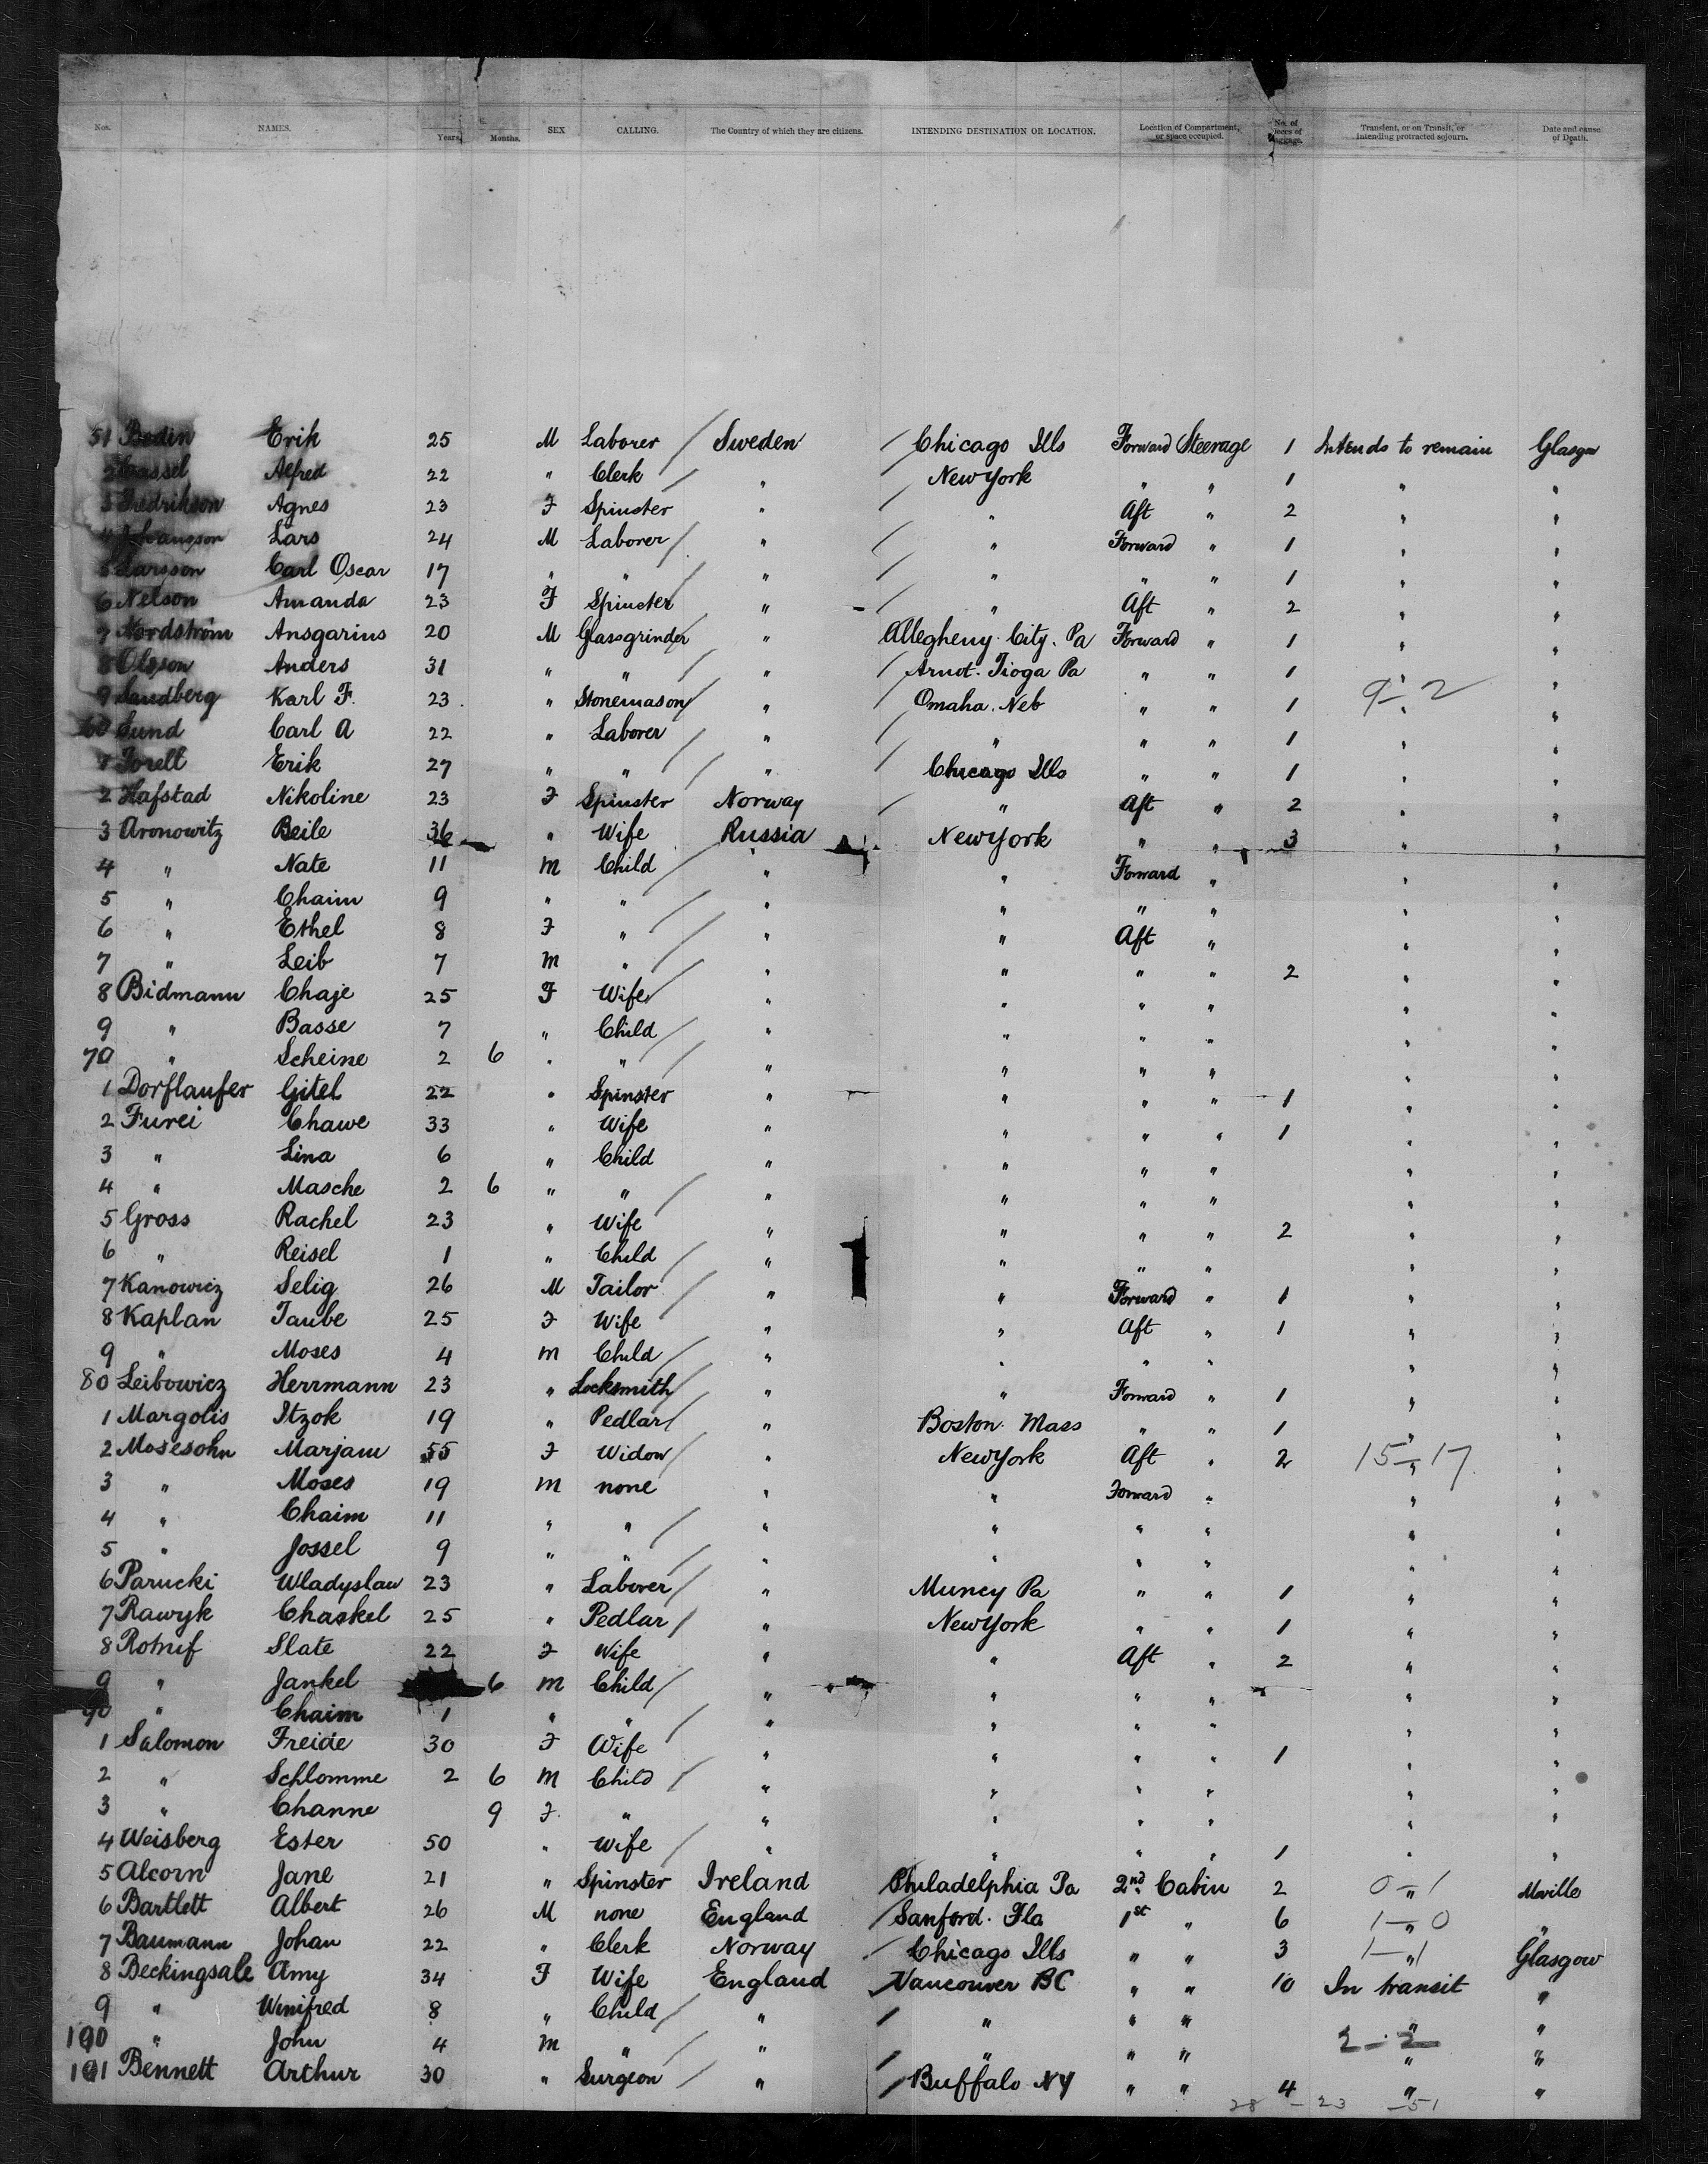 Nos. NAMES. Years. Months. SEX CALLING. The Country of which they are citizens. INTENDING DESTINATION OR LOCATION. Location of Compartment, or space occupied. No. of Transient, or on Transit, or intending protracted sojourn. Date and cause of Death.
51 Bodin Erik 25 M Laborer Sweden Chicago Ills Forward Steerage 1 Intends to remain Glasgow
2 Cassel Alfred 22 " Clerk " New York " " 1 " "
3 Fredrikson Agnes 23 F Spinster " " Aft " 2 " "
Lars 24 M Laborer " " Forward " 1 " "
5 Larsson Carl Oscar 17 " " " " " " 1 " "
6 Nelson Amanda 23 F Spinster " " Aft " 2 " "
7 Nordström Ansgarius 20 M Glassgrinder " Allegheny City. Pa Forward " 1 " "
8 Olsson Anders 31 " " " Arnot. Tioga Pa " " 1 " "
9 Sandberg Karl F. 23 " Stonemason " Omaha. Neb " " 1 9-2 " "
60 Sund Carl A 22 " Laborer " " " " 1 " "
1 Torell Erik 27 " " " Chicago Ills " " 1 " "
2 Hafstad Nikoline 23 F Spinster Norway " Aft " 2 " "
3 Aronowitz Beile 36 " Wife Russia New York " " 3 " "
4 " Nate 11 M Child " " Forward " " "
5 " Chaim 9 " " " " " " " "
6 " Ethel 8 F " " " Aft " " "
7 " Leib 7 M " " " " " 2 " "
8 Bidmann Chaje 25 F Wife " " " " " "
9 " Basse 7 " Child " " " " " "
70 " Scheine 2 6 " " " " " " " "
1 Dorflaufer Gitel 22 " Spinster " " " " 1 " "
2 Furei Chawe 33 " Wife " " " " 1 " "
3 " Lina 6 " Child " " " " " "
4 " Masche 2 6 " " " " " " " "
5 Gross Rachel 23 " Wife " " " " 2 " "
6 " Reisel 1 " Child " " " " " "
7 Kanowicz Selig 26 M Tailor " " Forward " 1 " "
8 Kaplan Taube 25 F Wife " " Aft " 1 " "
9 " Moses 4 M Child " " " " " "
80 Leibowicz Herrmann 23 " Locksmith " " Forward " 1 " "
1 Margolis Itzok 19 " Pedlar " Boston. Mass " " 1 " "
2 Mosesohn Marjam 55 F Widow " New York Aft " 2 15-17 " "
3 " Moses 19 M none " " Forward " " "
4 " Chaim 11 " " " " " " " "
5 " Jossel 9 " " " " " " " "
6 Parucki Wladyslaw 23 " Laborer " Muncy Pa " " 1 " "
7 Rawyk Chaskel 25 " Pedlar " New York " " 1 " "
8 Slate 22 F Wife " " Aft " 2 " "
9 " Jankel 6 M Child " " " " " "
90 " Chaim 1 " " " " " " " "
1 Salomon Freide 30 F Wife " " " " 1 " "
2 " Schlomme 2 6 M Child " " " " " "
3 " Channe 9 F " " " " " " "
4 Weisberg Ester 50 " Wife " " " " 1 " "
5 Alcorn Jane 21 " Spinster Ireland Philadelphia Pa 2nd Cabin 2 0-1 " Moville
6 Bartlett Albert 26 M none England Sanford. Fla 1st " 6 1-0 " "
7 Baumann Johan 22 " Clerk Norway Chicago Ills " " 3 1-1 " Glasgow
8 Beckingsale Amy 34 F Wife England Vancouver BC " " 10 In transit "
9 " Winifred 8 " Child " " " " " "
100 " John 4 M " " " " " 2-2 " "
101 Bennett Arthur 30 " Surgeon " Buffalo NY " " 4 " "
28 - 23 - 51